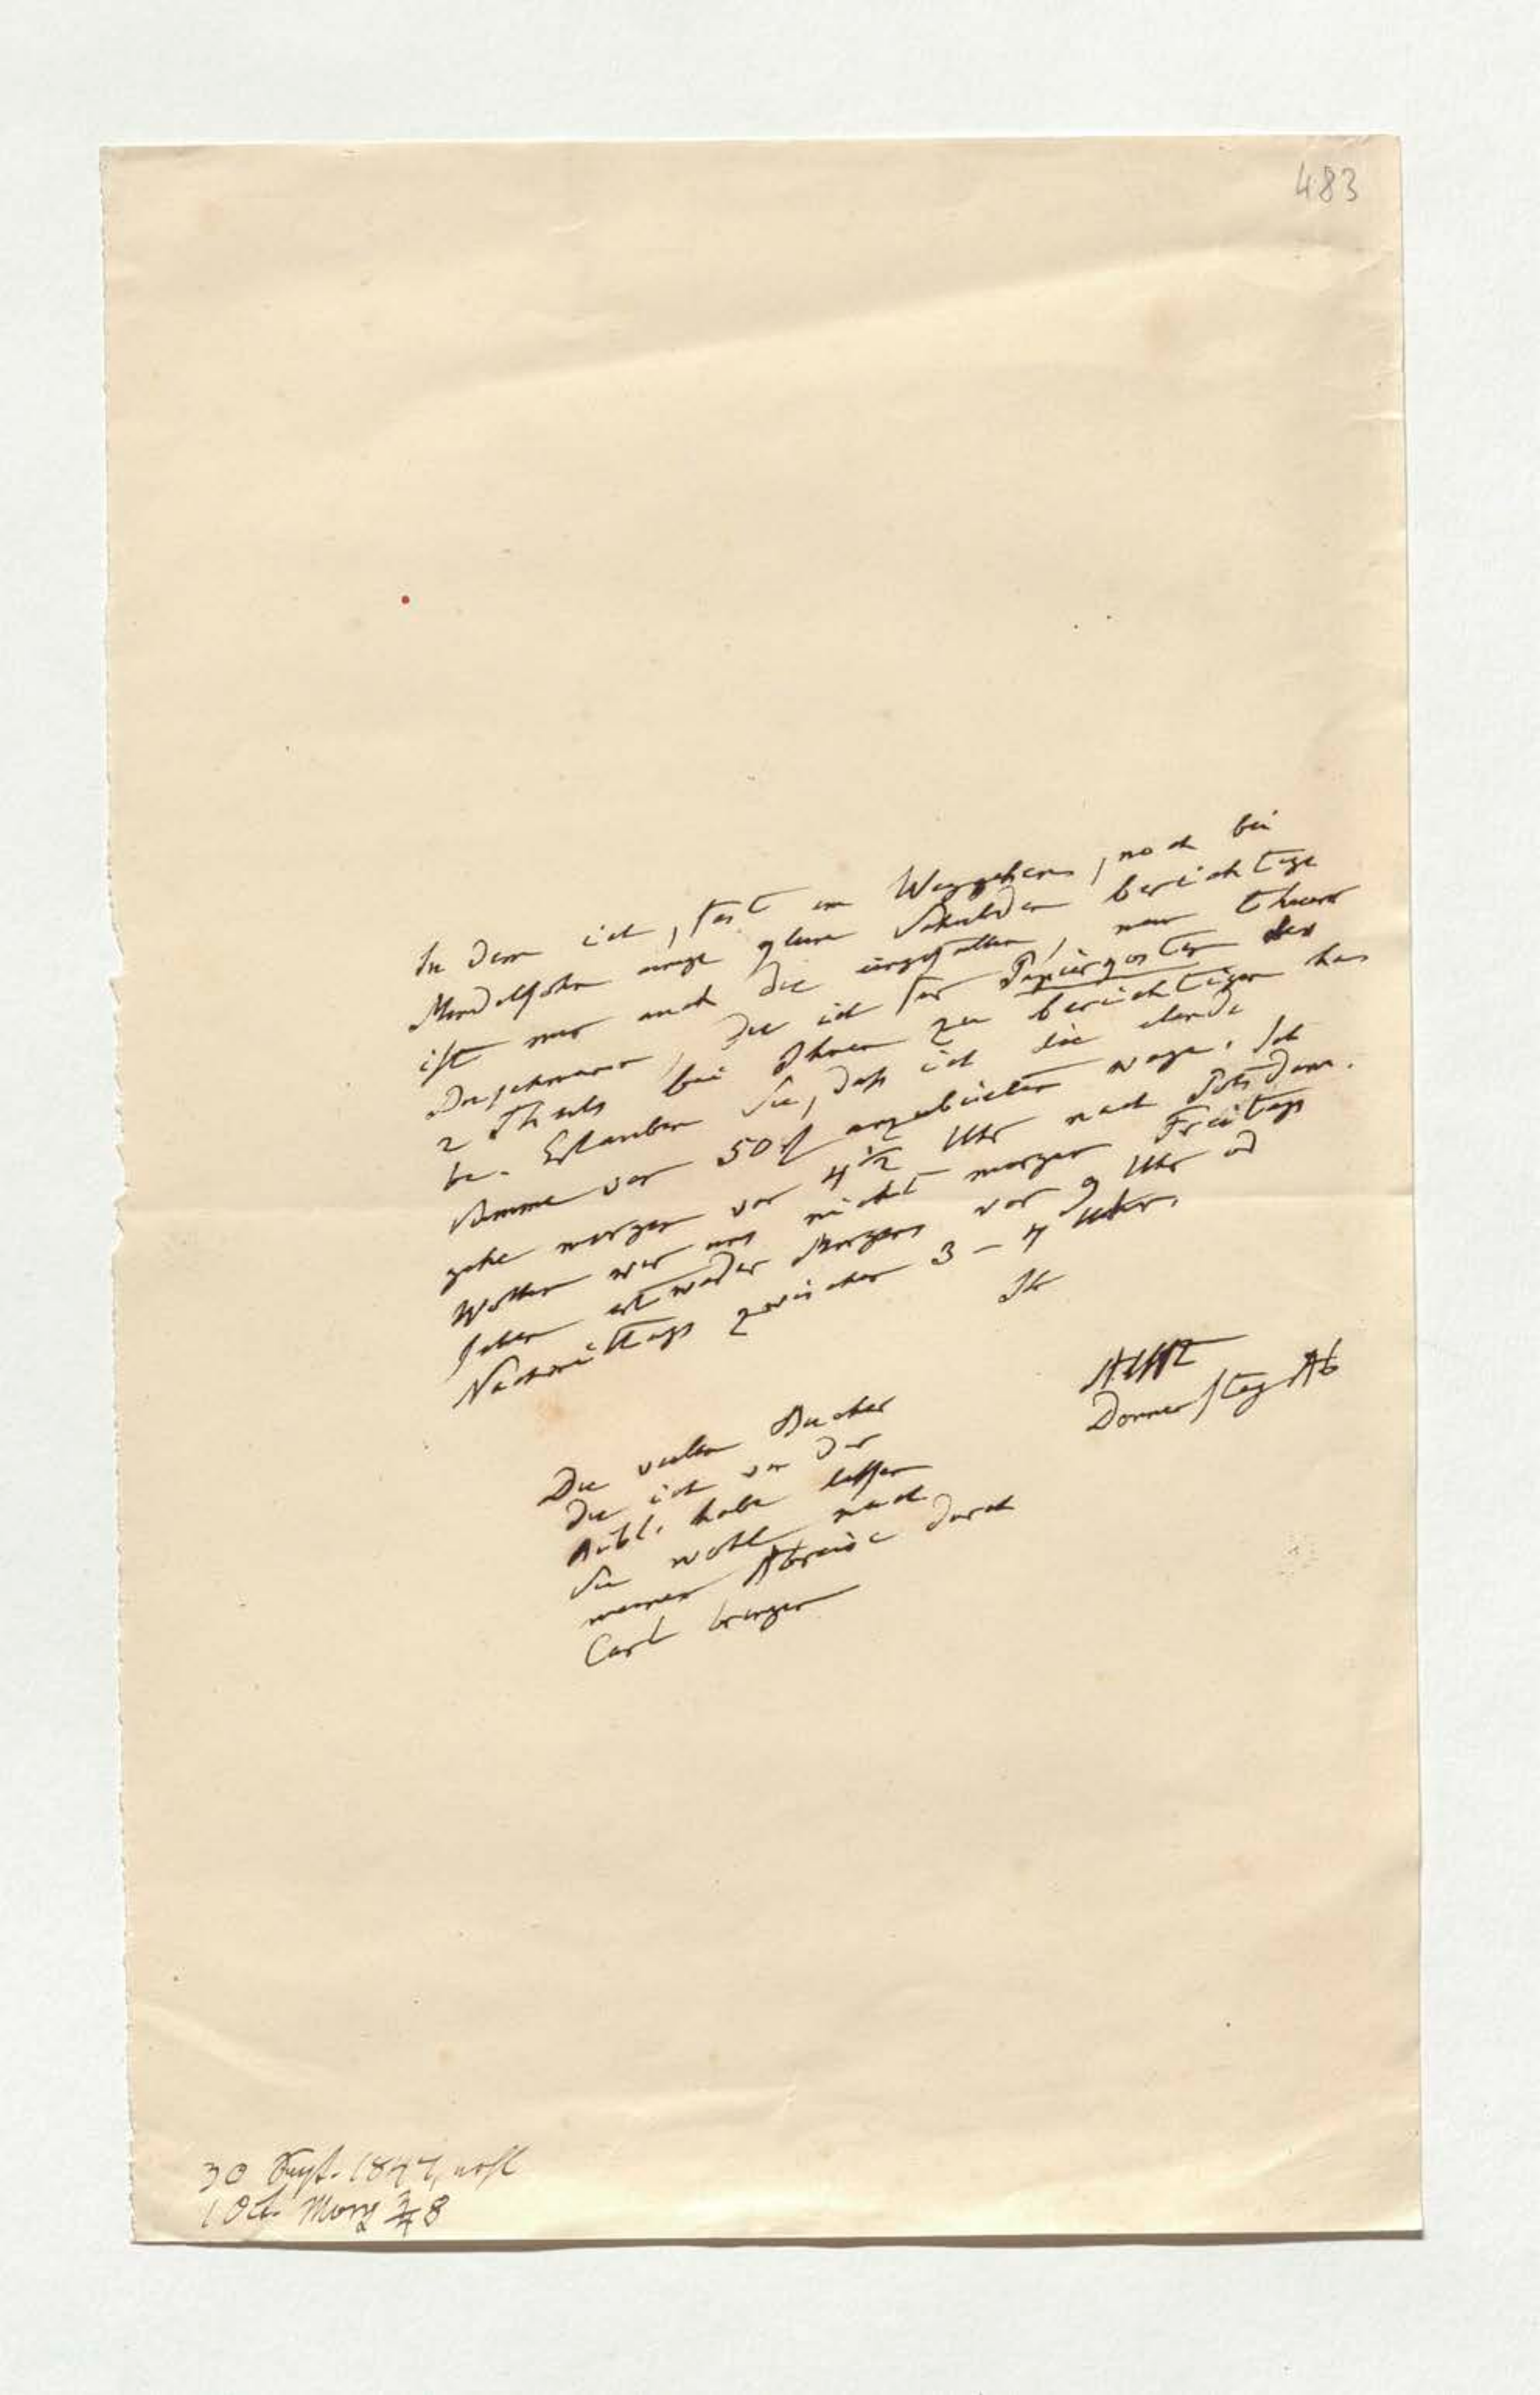 483
In dem ich, fast im Weggehen, noch bei
Mendelssohn einige Schulden berichtige
ist mir auch die eingefallen, mein theurer
Buschmann, die ich für Papiergoster des
2 Theils bei Ihnen zu berichtigen ha
be. Erlauben Sie, daß ich die elende
Summe von 50 anzubieten wage. Ich
gehe morgen vor 4 1/2 Uhr nach Potsdam.
Wollen wir uns nicht morgen Freitags
sehen entweder Morgens vor 9 Uhr od
Nachmittags zwischen 3 – 4 Uhr.
Ihr
AHt
Donnerstag Ab
Die vielen Bücher
die ich von der
Bibl. habe lassen
Sie wohl nach
meiner Abreise durch
Carl bringen
30 Sept. 1847, erh
1 Oct. Morg 3/4 8